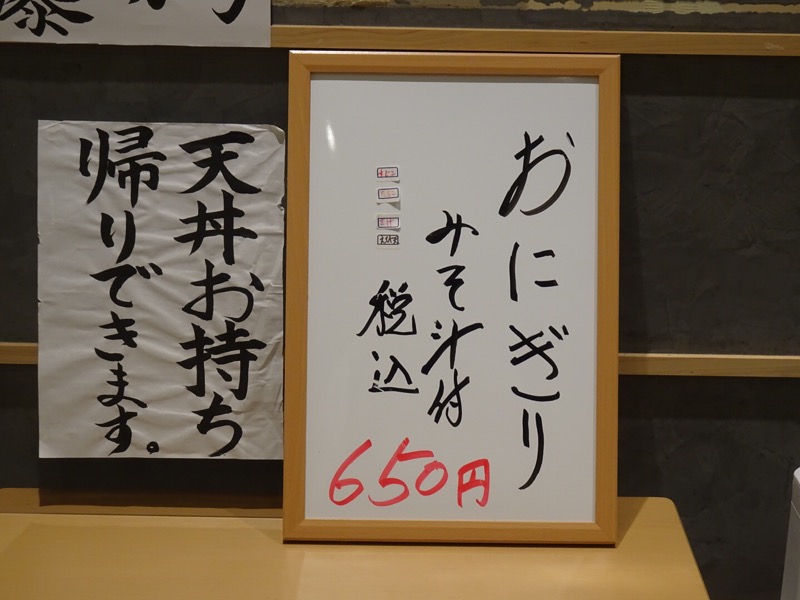 おにぎり
みそ汁付
税込
650円
天丼お持ち
帰りできます。